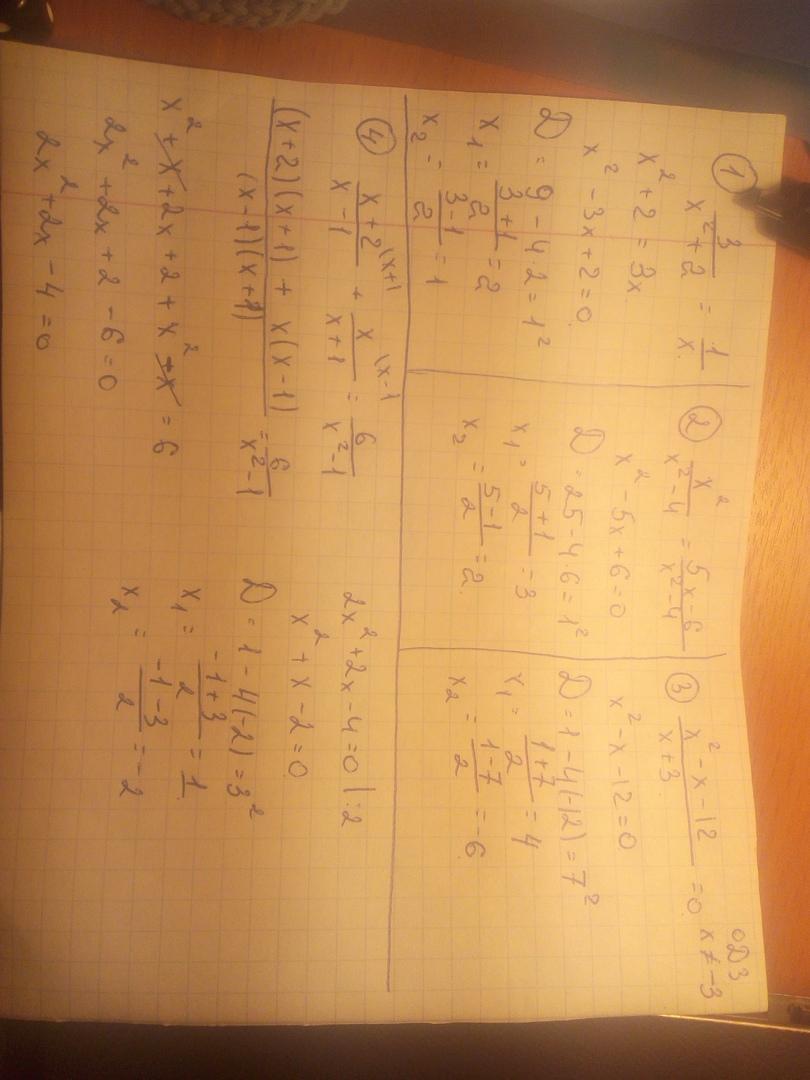 ① 3/(x²+2) = 1/x
x² + 2 = 3x
x² - 3x + 2 = 0
D = 9 - 4·2 = 1²
x₁ = (3+1)/2 = 2
x₂ = (3-1)/2 = 1
② x²/(x²-4) = (5x-6)/(x²-4)
x² - 5x + 6 = 0
D = 25 - 4·6 = 1²
x₁ = (5+1)/2 = 3
x₂ = (5-1)/2 = 2
③ (x²-x-12)/(x+3) = 0
ОДЗ
x ≠ -3
x² - x - 12 = 0
D = 1 - 4(-12) = 7²
x₁ = (1+7)/2 = 4
x₂ = (1-7)/2 = -6
④ (x+2)/(x-1) \x+1 + x/(x+1) \x-1 = 6/(x²-1)
((x+2)(x+1) + x(x-1))/((x-1)(x+1)) = 6/(x²-1)
x² + x + 2x + 2 + x² + x = 6
2x² + 2x + 2 - 6 = 0
2x² + 2x - 4 = 0
2x² + 2x - 4 = 0 | :2
x² + x - 2 = 0
D = 1 - 4(-2) = 3²
x₁ = (-1+3)/2 = 1
x₂ = (-1-3)/2 = -2